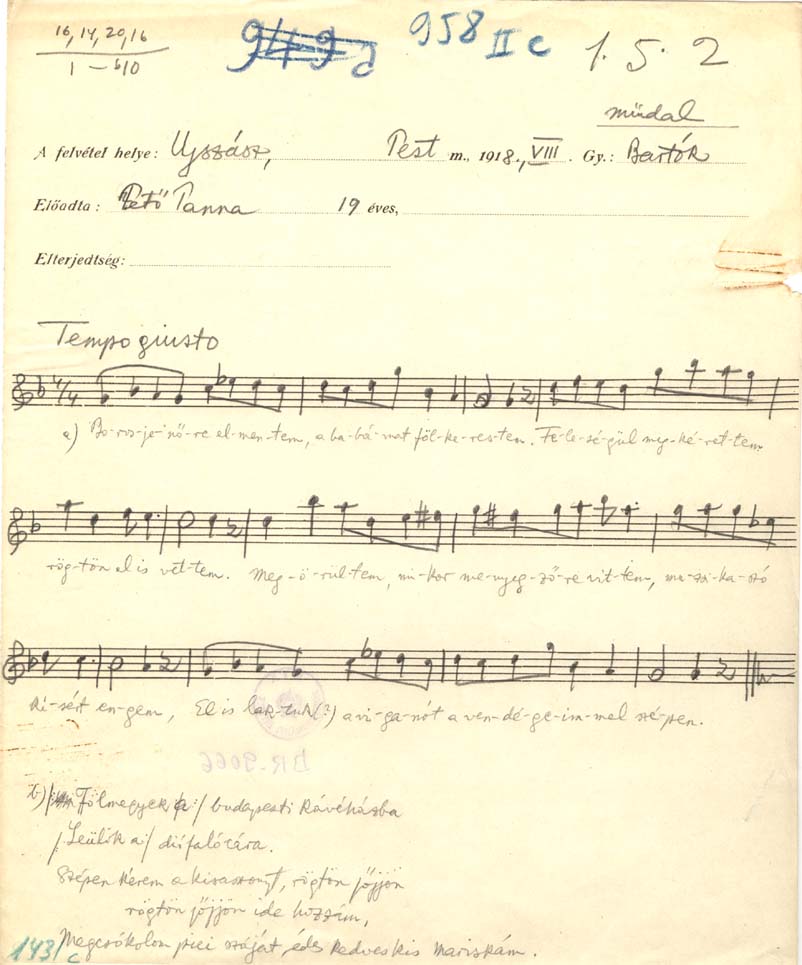 16, 14, 20, 16
1 – b10
949 d
958 II c
1. 5. 2
műdal
A felvétel helye: Ujszász, Pest m., 1918., VIII. Gy.: Bartók
Előadta: Pető Panna 19 éves,
Elterjedtség:
Tempo giusto
4/4
a) Bo-ros-je-nő-re el-men-tem, a ba-bá-mat föl-ke-res-tem. Fe-le-sé-gül meg-ké-ret-tem
rög-tön el is vet-tem. Meg-ö-rül-tem, mi-kor me-nyeg-ző-re vit-tem, mu-zsi-ka-szó
ki-sért en-gem, El is lak-tuk(?) a vi-ga-nót a ven-dé-ge-im-mel szé-pen.
BR-9066
b) Fölmegyek /a/ budapesti kávéházba
/Leülök a/ diófalócára.
Szépen kérem a kisasszonyt, rögtön jőjjön
rögtön jőjjön ide hozzám,
Megcsókolom pici száját, édes kedves kis Mariskám.
143/c